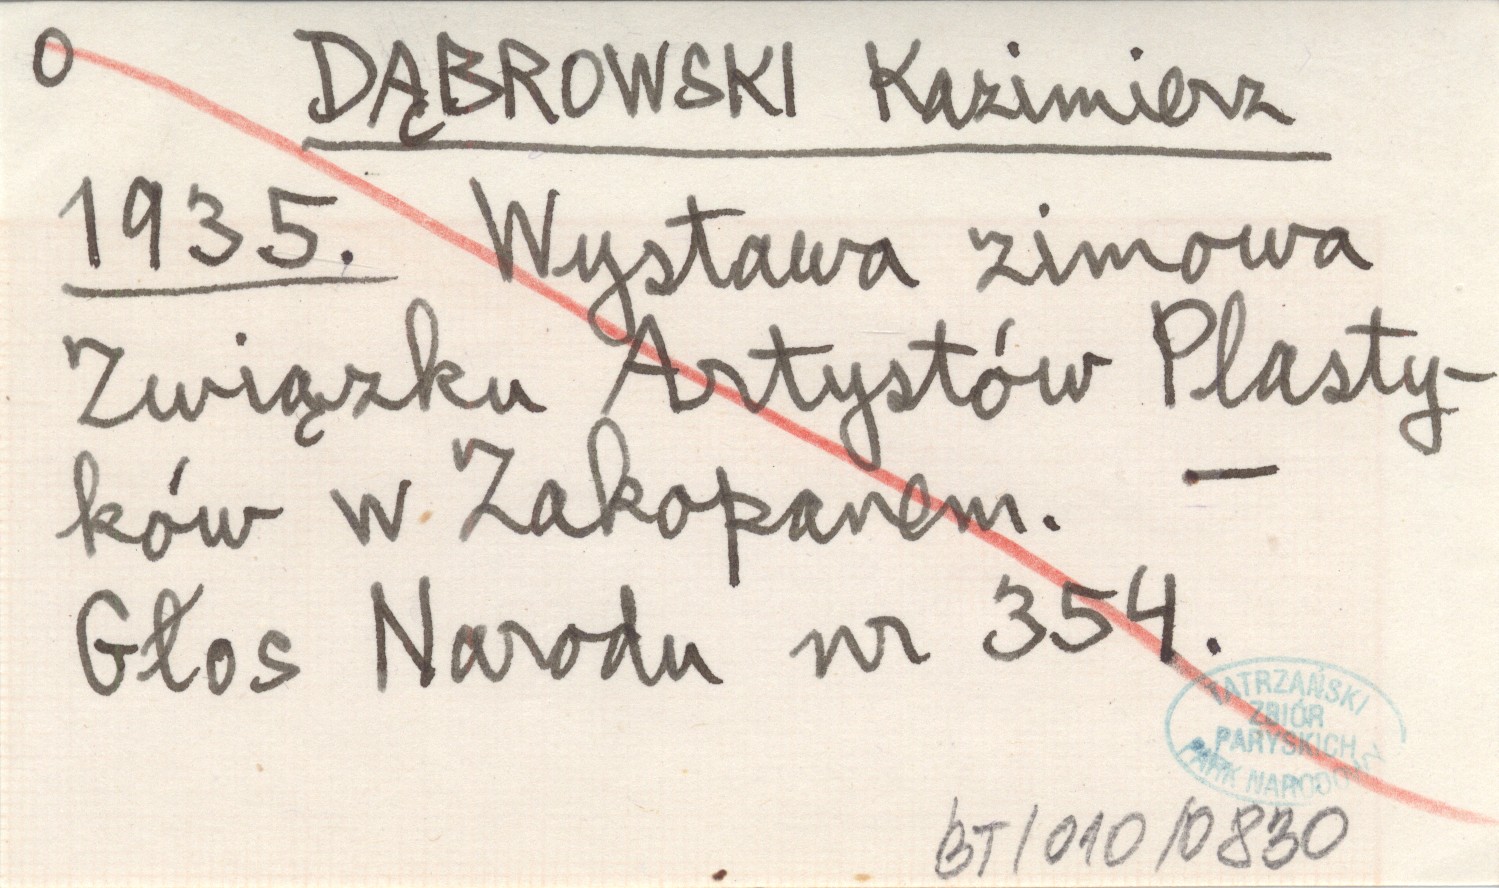 O DĄBROWSKI Kazimierz
1935. Wystawa zimowa
Związku Artystów Plasty-
ków w Zakopanem. —
Głos Narodu nr 354.
TATRZAŃSKI
ZBIÓR
PARYSKICH
PARK NARODOWY
BT/010/0830